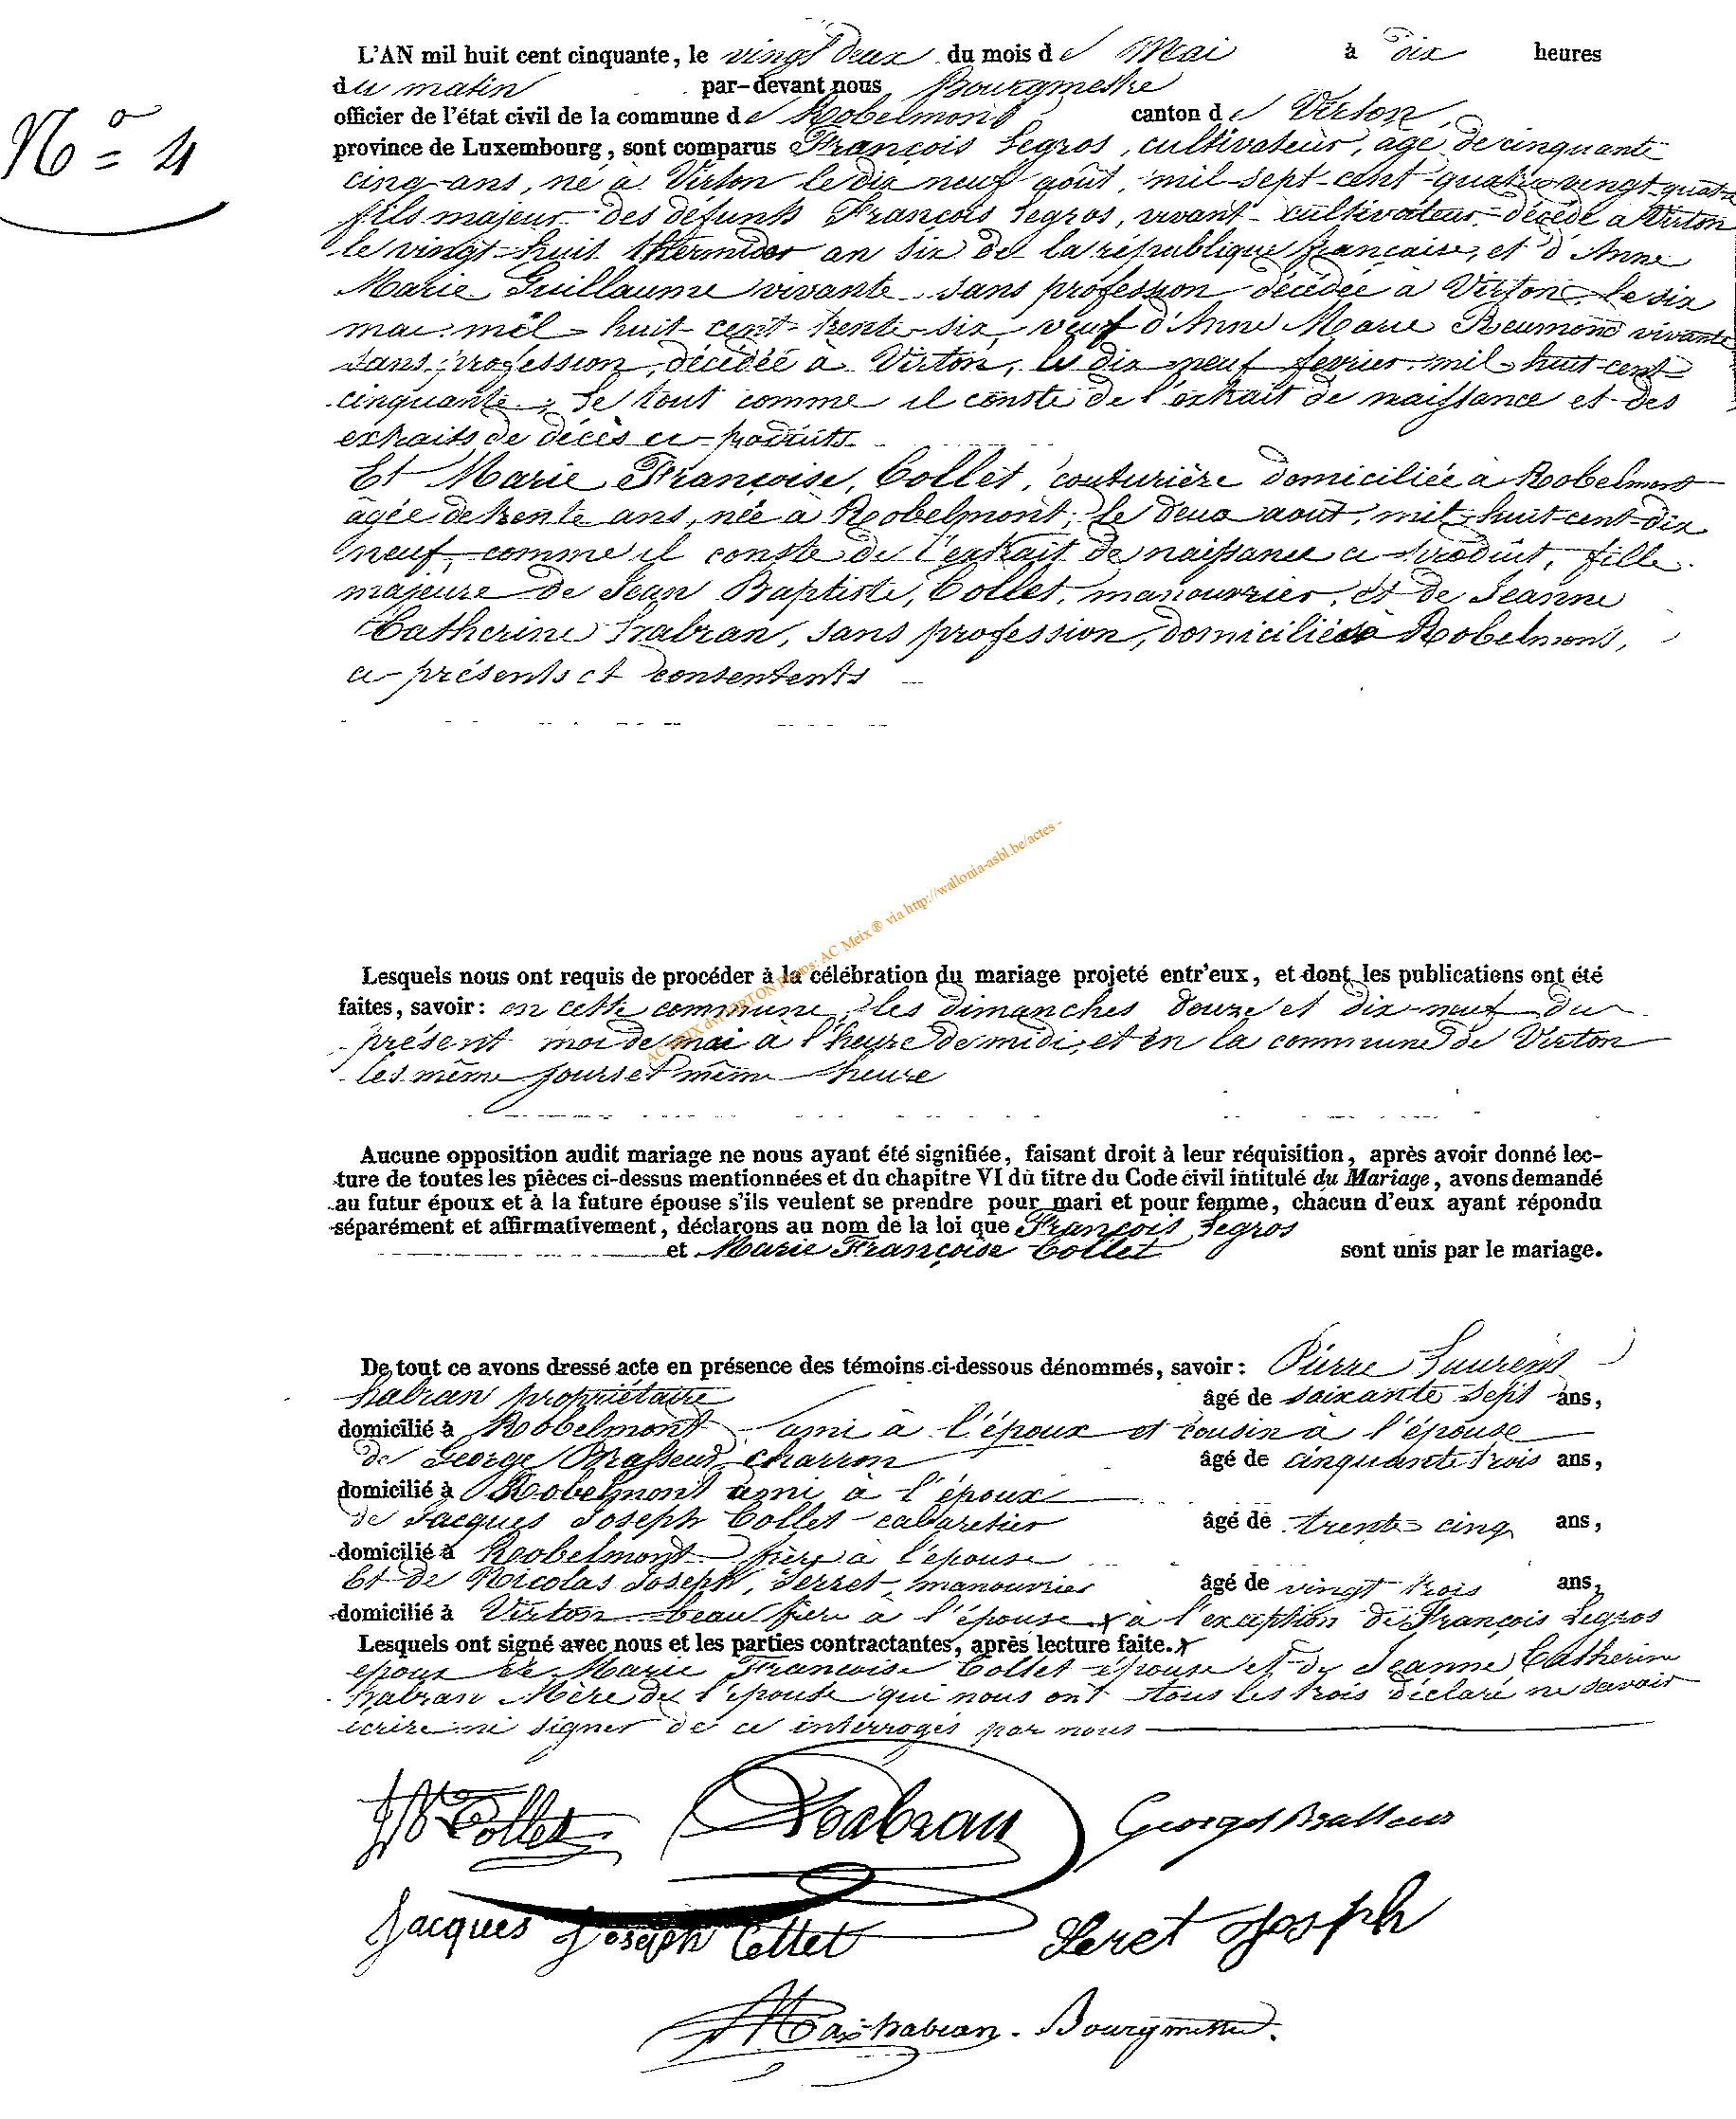 L'AN mil huit cent cinquante, le vingt deux du mois de Mai à dix heures
du matin par-devant nous Bourgmestre
officier de l'état civil de la commune de Robelmont canton de Virton,
N° 4
province de Luxembourg, sont comparus François Legros, cultivateur, agé de cinquante
cinq ans, né à Virton le dix neuf août, mil sept cent quatre vingt quatre
fils majeur des défunts François Legros, vivant cultivateur décédé à Virton
le vingt huit thermidor an six de la république française, et d'Anne
Marie Guillaume vivante sans profession décédée à Virton, le six
mai mil huit cent trente six, veuf d'Anne Marie Reumond vivante
sans profession, décédée à Virton, le dix neuf fevrier mil huit cent
cinquante, le tout comme il conste de l'extrait de naissance et des
extraits de décès ci-produits
Et Marie Françoise, Collet, couturière domiciliée à Robelmont
âgée de trente ans, née à Robelmont, le deux août, mil huit cent dix
neuf, comme il conste de l'extrait de naissance ci produit, fille
majeure de Jean Baptiste, Collet, manouvrier, et de Jeanne
Catherine Habran, sans profession, domiciliés à Robelmont,
ci présents et consentents
AC MEIX dvt VIRTON Photos: AC Meix ® via http://wallonia-asbl.be/actes -
Lesquels nous ont requis de procéder à la célébration du mariage projeté entr'eux, et dont les publications ont été
faites, savoir: en cette commune, les dimanches douze et dix neuf du
présent moi de mai à l'heure de midi, et en la commune de Virton
les même jours et même heure
Aucune opposition audit mariage ne nous ayant été signifiée, faisant droit à leur réquisition, après avoir donné lec-
ture de toutes les pièces ci-dessus mentionnées et du chapitre VI du titre du Code civil intitulé du Mariage, avons demandé
au futur époux et à la future épouse s'ils veulent se prendre pour mari et pour femme, chacun d'eux ayant répondu
séparément et affirmativement, déclarons au nom de la loi que François Legros
et Marie Françoise Collet sont unis par le mariage.
De tout ce avons dressé acte en présence des témoins ci-dessous dénommés, savoir: Pierre Laurent
habran propriétaire âgé de soixante sept ans,
domicilié à Robelmont ami à l'époux et cousin à l'épouse
de George Brasseur charron âgé de cinquante trois ans,
domicilié à Robelmont ami à l'époux
de Jacques Joseph Collet cabaretier âgé de trente cinq ans,
domicilié à Robelmont frère à l'epouse
Et de Nicolas Joseph, Serret, manouvrier âgé de vingt trois ans,
domicilié à Virton beau frère à l'épouse x à l'exception de François Legros
Lesquels ont signé avec nous et les parties contractantes, après lecture faite. x
epoux de Marie Francoise Collet épouse et de Jeanne Catherine
habran Mère de l'épouse qui nous ont tous les trois déclaré ne savoir
écrire ni signer de ce interrogés par nous
JB Collet Habran George Brasseur
Jacques Joseph Collet Seret Joseph
Habran Bourgmestre.